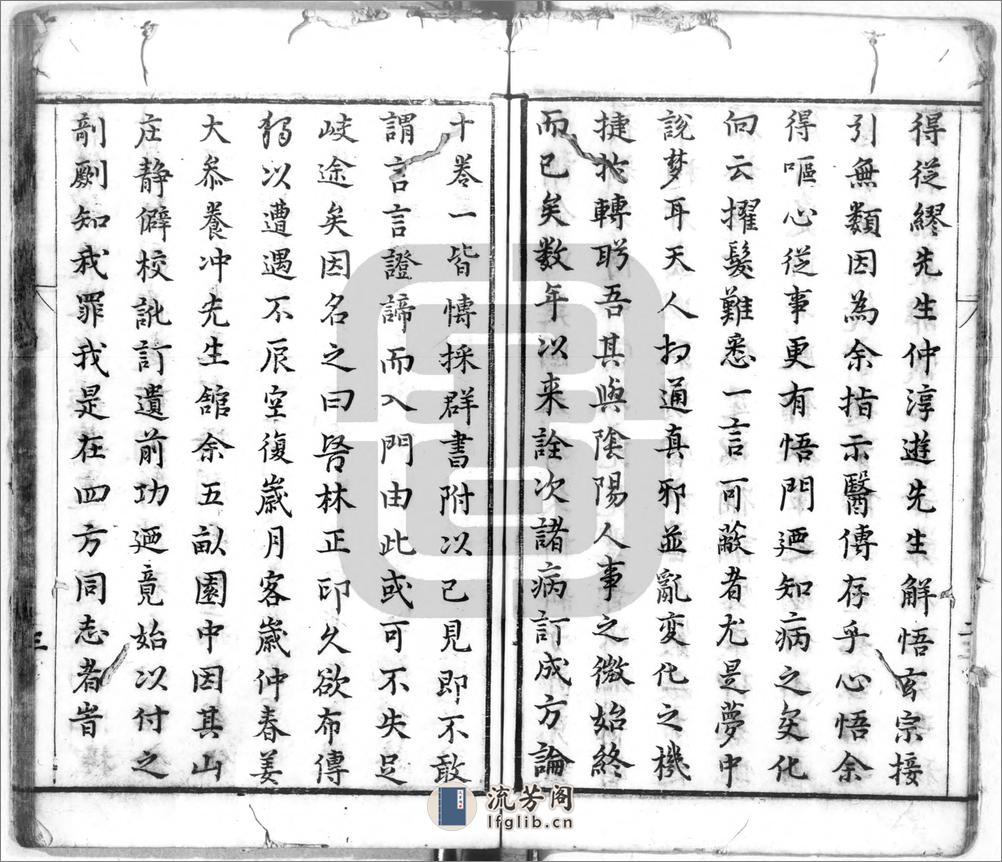 得從繆先生仲淳遊先生解悟玄宗接
引無類因為余指示醫傳存乎心悟余
得嘔心從事更有悟門廼知病之変化
向云擢髮難悉一言可蔽者尤是夢中
說梦耳天人扣通真邪並亂変化之機
捷扵轉盻吾其與陰陽人事之微始終
而已矣数年以来詮次諸病訂成方論
十卷一皆慱採群書附以己見即不敢
謂言言證諦而入門由此或可不失足
岐途矣因名之曰醫林正印久欲布傳
獨以遭遇不辰空復歲月客歲仲春姜
大叅養冲先生舘余五畝園中因其山
庄静僻校訛訂遺前功廼竟始以付之
剞劂知我罪我是在四方同志者旹
二
三
流芳阁
lfglib.cn